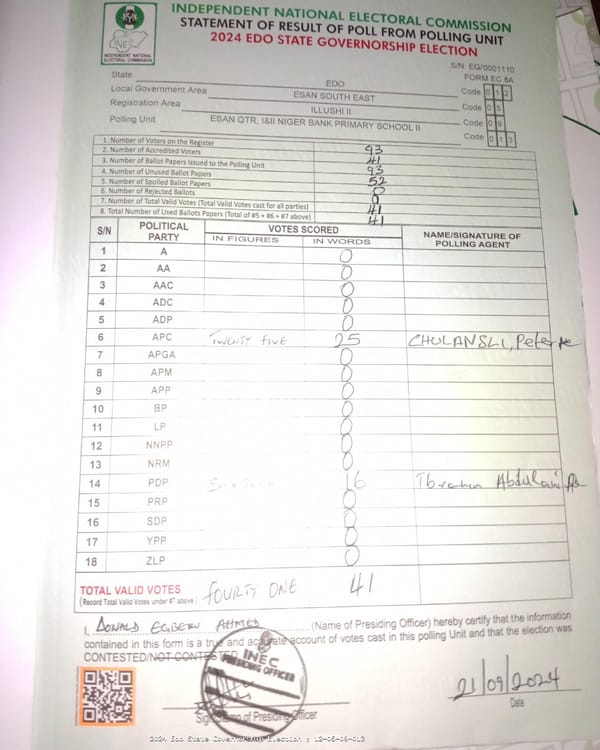 INDEPENDENT NATIONAL ELECTORAL COMMISSION
STATEMENT OF RESULT OF POLL FROM POLLING UNIT
2024 EDO STATE GOVERNORSHIP ELECTION
INEC
INDEPENDENT NATIONAL
ELECTORAL COMMISSION
S/N EG/0001110
FORM EC 8A
State EDO Code 0 1 2
Local Government Area ESAN SOUTH EAST Code 0 5
Registration Area ILLUSHI II Code 0 9
Polling Unit ESAN QTR, I&II NIGER BANK PRIMARY SCHOOL II Code 0 1 3
1. Number of Voters on the Register 93
2. Number of Accredited Voters 41
3. Number of Ballot Papers Issued to the Polling Unit 93
4. Number of Unused Ballot Papers 52
5. Number of Spoiled Ballot Papers 0
6. Number of Rejected Ballots 0
7. Number of Total Valid Votes (Total Valid Votes cast for all parties) 41
8. Total Number of Used Ballots Papers (Total of #5 + #6 + #7 above) 41
S/N POLITICAL PARTY VOTES SCORED NAME/SIGNATURE OF POLLING AGENT
IN FIGURES IN WORDS
1 A 0
2 AA 0
3 AAC 0
4 ADC 0
5 ADP 0
6 APC TWENTY FIVE 25 Peter
7 APGA 0
8 APM 0
9 APP 0
10 BP 0
11 LP 0
12 NNPP 0
13 NRM 0
14 PDP Sixteen 16 Ibrahim
15 PRP 0
16 SDP 0
17 YPP 0
18 ZLP 0
TOTAL VALID VOTES FOURTY ONE 41
(Record Total Valid Votes under #7 above)
I, DONALD EGBEKU AHMED (Name of Presiding Officer) hereby certify that the information
contained in this form is a true and accurate account of votes cast in this polling Unit and that the election was
CONTESTED/NOT CONTESTED
INEC
PRESIDING OFFICER
21/09/2024
Sign of Presiding Officer
Date
2024 Edo State Governorship Election : 12-05-09-013